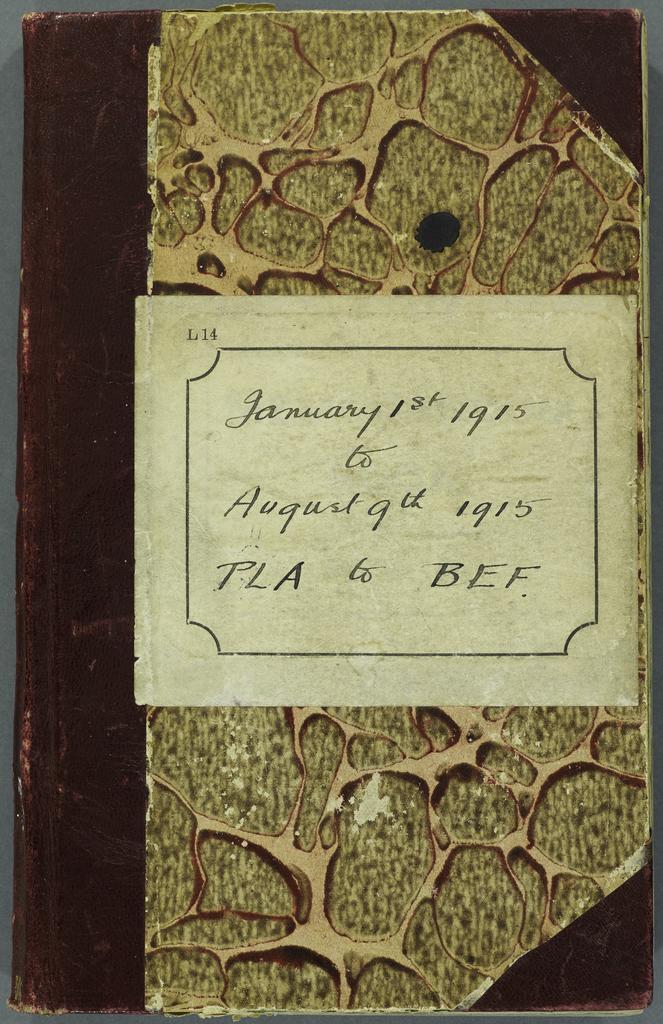 L 14
January 1st 1915
to
August 9th 1915
PLA to BEF.